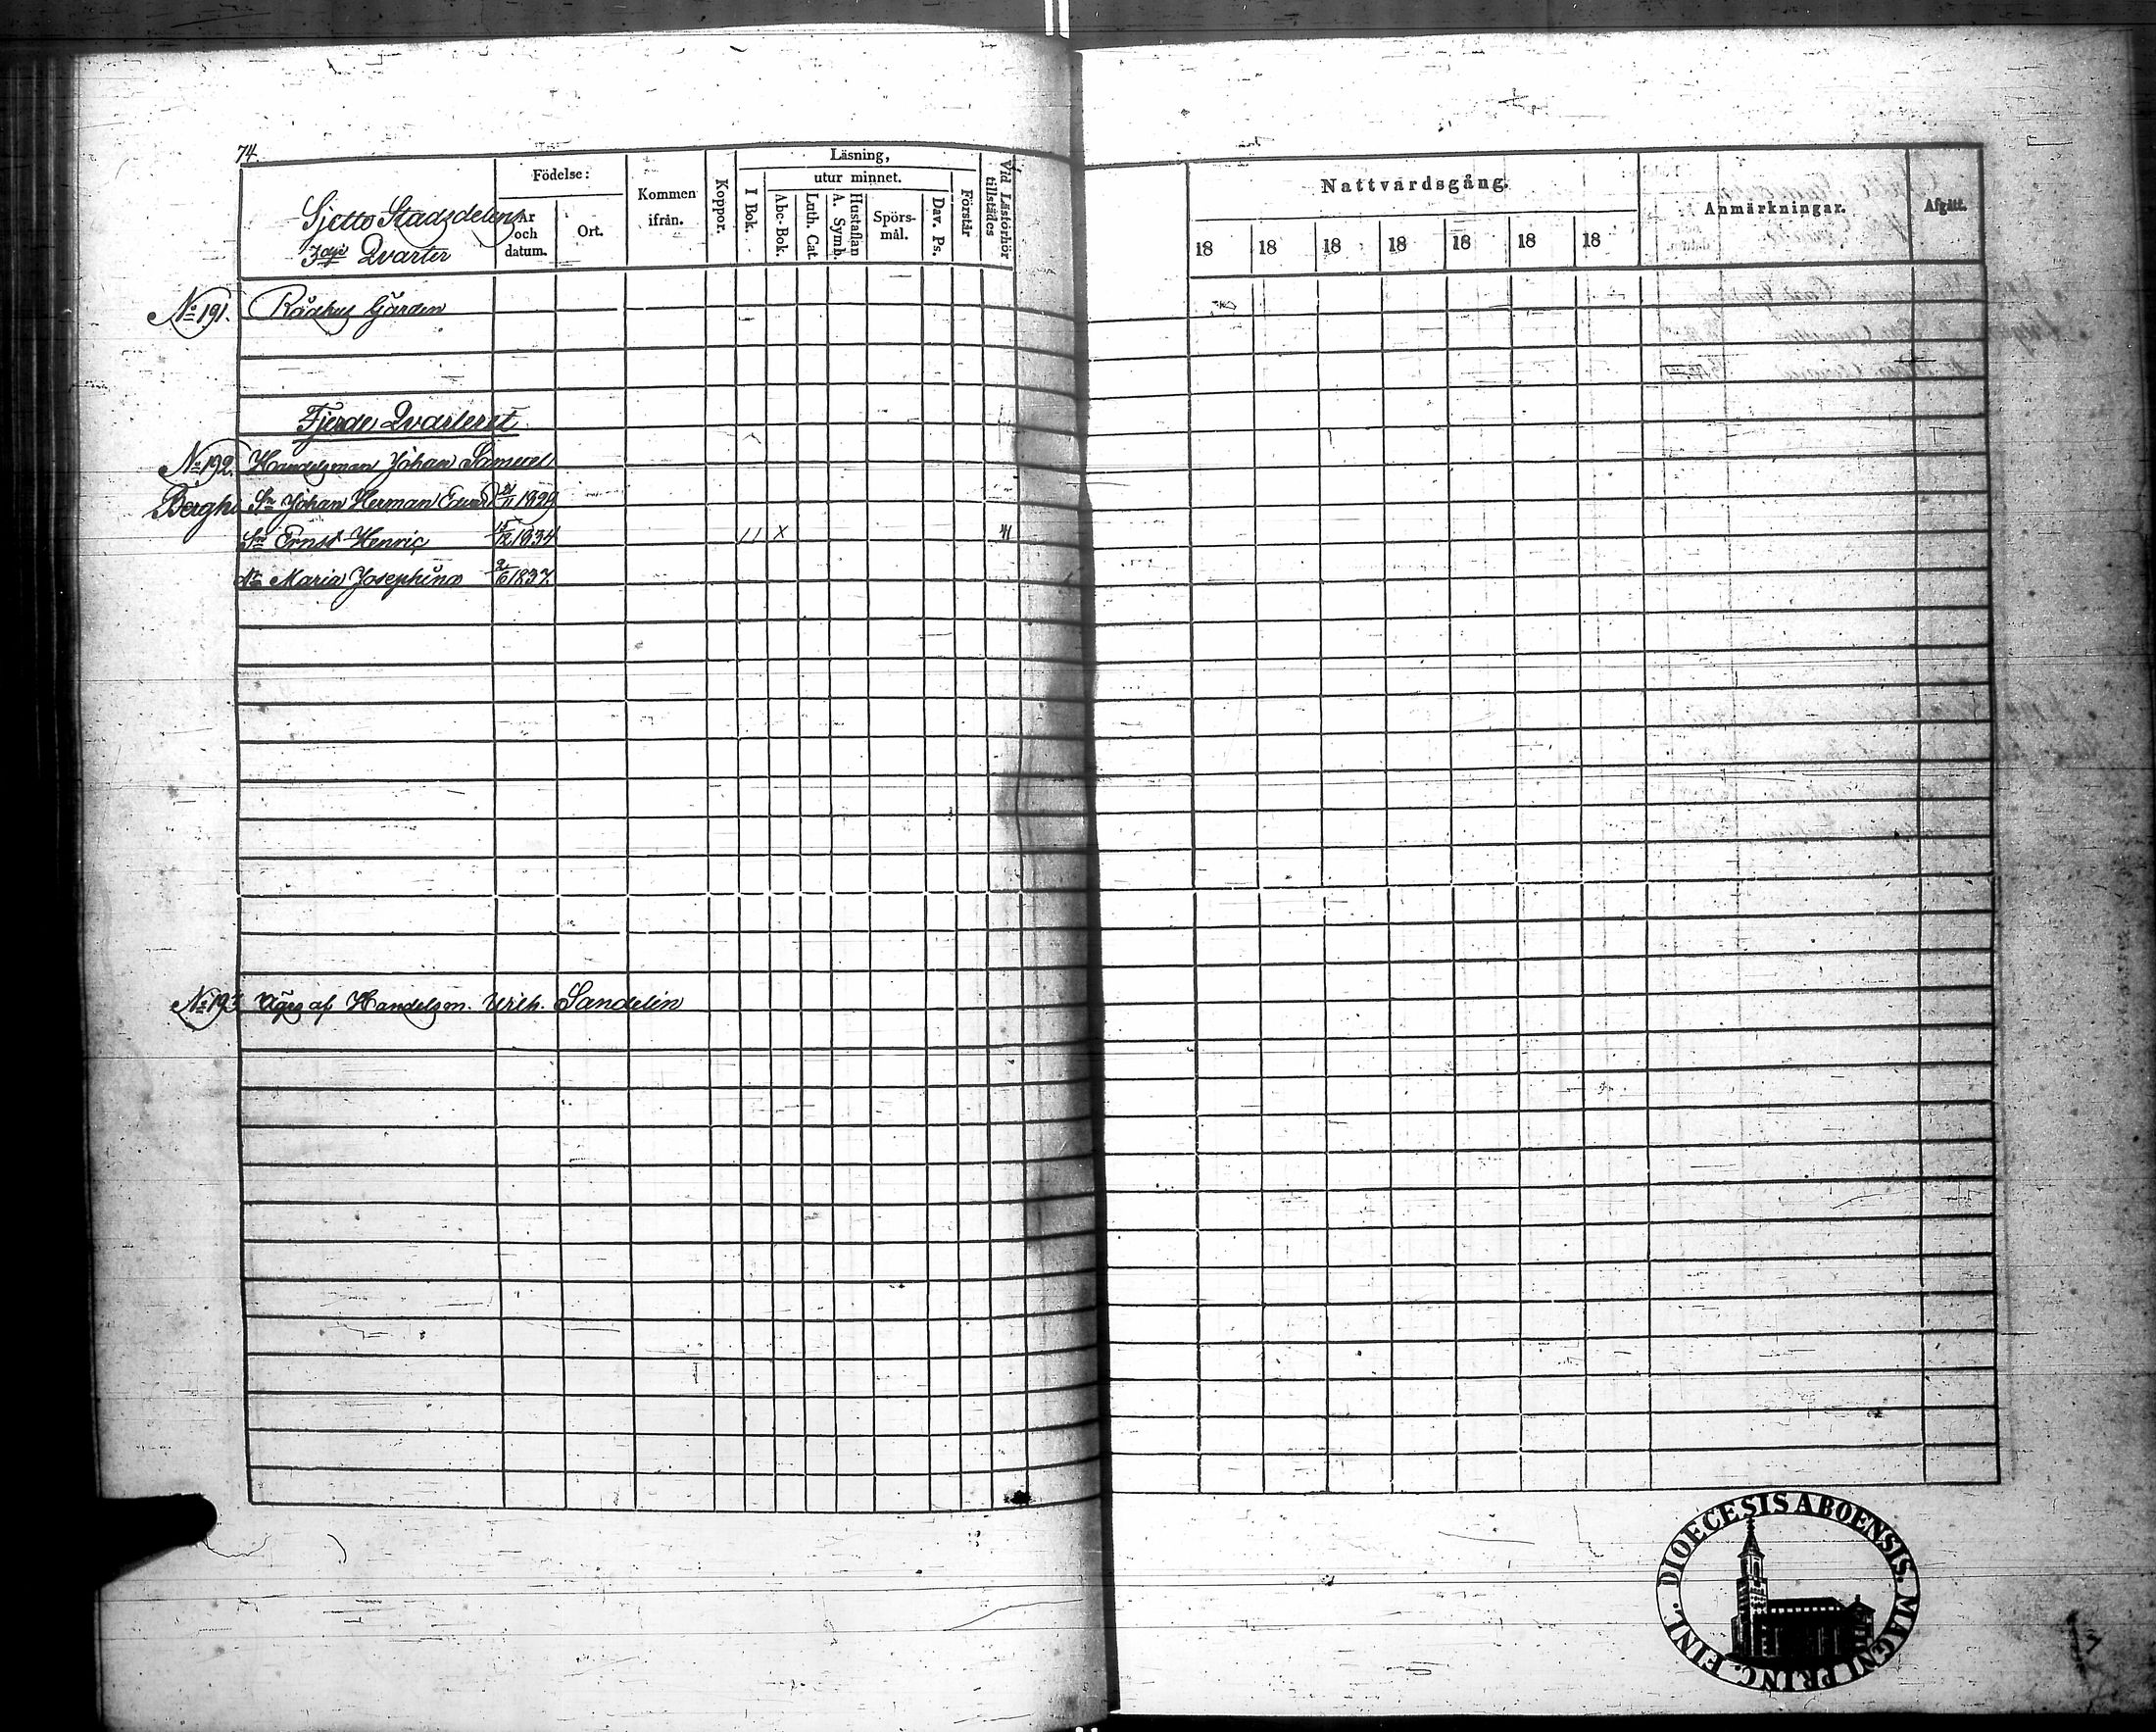 74.
Sjette Stadsdelens
3dje Qvarter
Födelse:
År och datum.
Ort.
Kommen ifrån.
Koppor.
Läsning,
I Bok.
utur minnet.
Abc-Bok.
Luth. Cat.
Hustaflan A. Symb.
Spörs-mål.
Dav. Ps.
Förstår
Vid Läsförhör tillstädes
Nattvardsgång.
18 18 18 18 18 18 18
Anmärkningar.
Afgått.
No 191. Rådhus Gården
Fjerde Qvarteret
No 192. Handelsman Johan Samuel
Bergh. Sn Johan Herman Edvard /11 1829
Sn Ernst Henric 15/12 1834 11 x 41
Dr Maria Josephina 2/6 1837.
No 193 Äges af Handelsm. Wilh. Sandelin
DIOECESIS ABOENSIS. MAGNI PRINC. FINL.